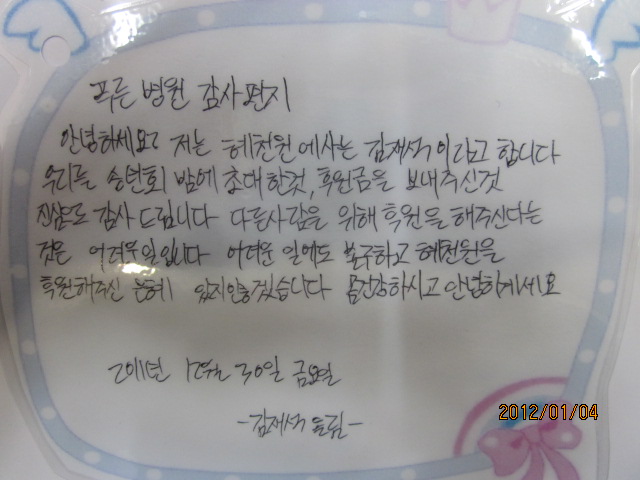 푸른 병원 감사편지
안녕하세요? 저는 혜천원에사는 김재석이라고 합니다
우리를 송년회 밤에 초대한것, 후원금을 보내주신것
진심으로 감사 드립니다 다른사람을 위해 후원을 해주신다는
것은 어려운일입니다 어려운 일에도 불구하고 혜천원을
후원해주신 은혜 잊지않겠습니다 몸건강하시고 안녕히계세요
2011년 12월 30일 금요일
-김재석 올림-
2012/01/04